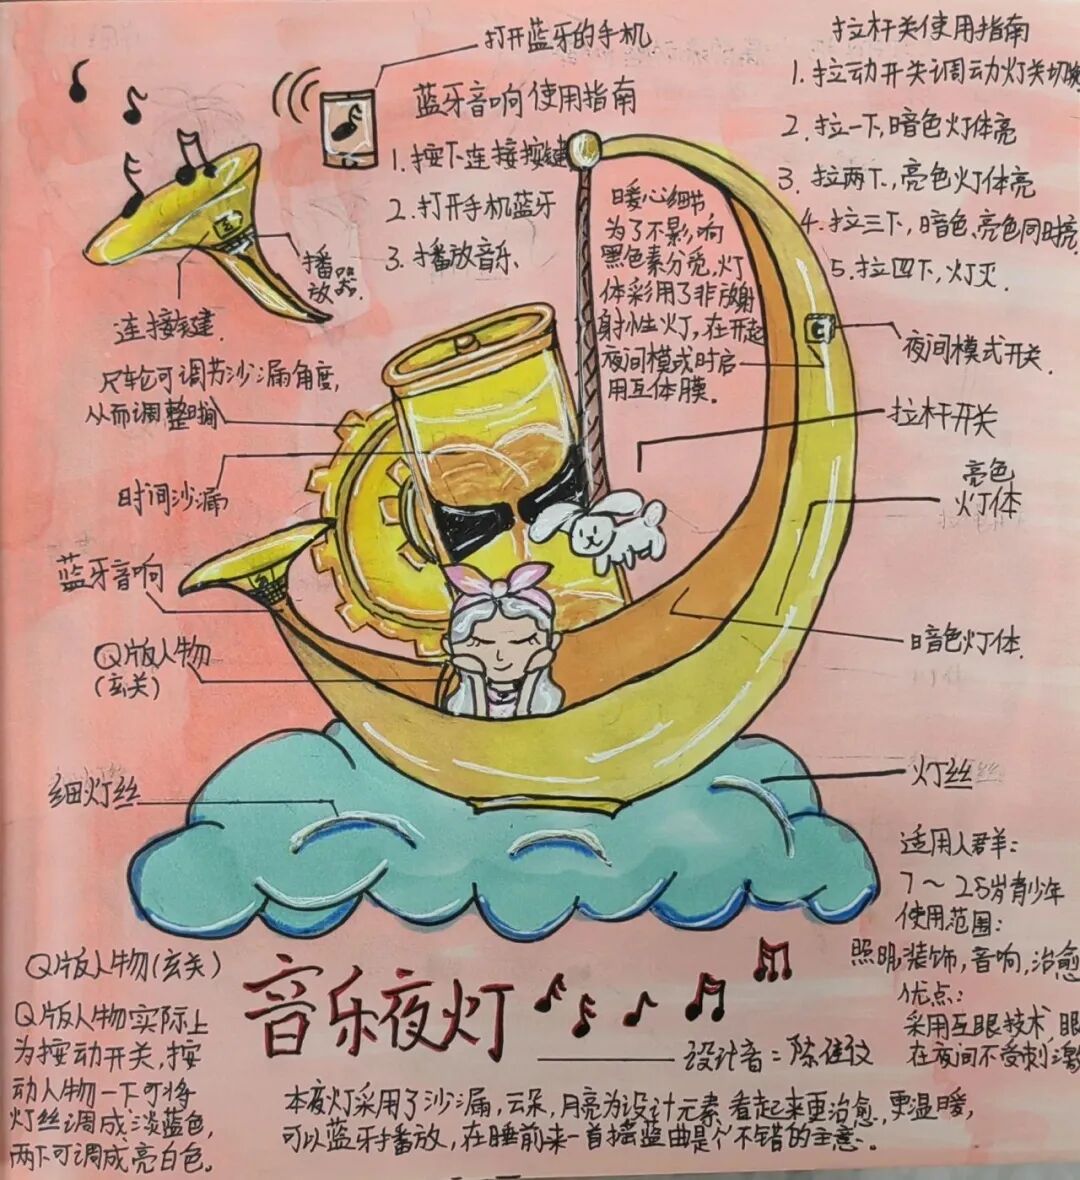 打开蓝牙的手机
蓝牙音响使用指南
1. 按下连接按键
2. 打开手机蓝牙
3. 播放音乐、
拉杆关使用指南
1. 拉动开关调动灯关切换
2. 拉一下,暗色灯体亮
3. 拉两下,亮色灯体亮
4. 拉三下,暗色、亮色同时亮
5. 拉四下,灯灭.
暖心细节
为了不影响
黑色素分兑,灯
体彩用了非放射
射小性灯,在开起
夜间模式时启
用互体膜。
播放器.
连接键.
尺轮可调节沙漏角度,
从而调整时间
时间沙漏
蓝牙音响
Q版人物
(玄关)
细灯丝
夜间模式开关.
拉杆开关
亮色
灯体
暗色灯体.
灯丝
适用人群:
7~25岁青少年
使用范围:
照明,装饰,音响,治愈
优点:
采用互眼技术,眼
在夜间不受刺激
Q版人物(玄关)
Q版人物实际上
为按动开关,按
动人物一下可将
灯丝调成淡蓝色,
两下可调成亮白色。
音乐夜灯
——设计者:陈佳仪
本夜灯采用了沙漏,云朵,月亮为设计元素,看起来更治愈,更温暖,
可以蓝牙播放,在睡前来一首摇蓝曲是个不错的主意。